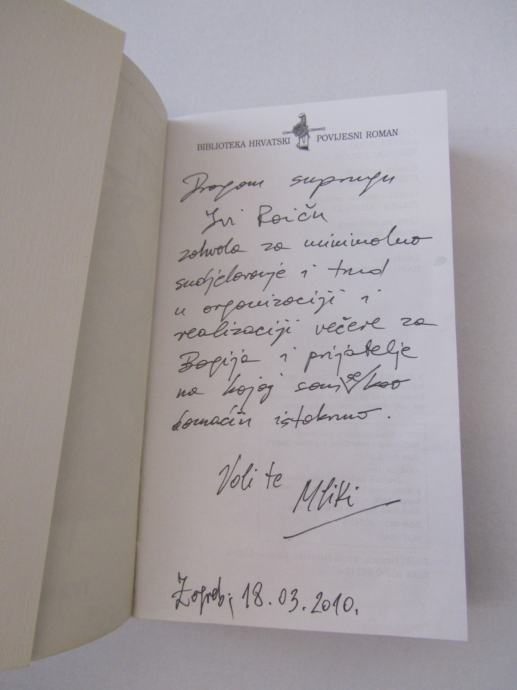 BIBLIOTEKA HRVATSKI POVIJESNI ROMAN
Dragom suprugu
Ivi Roiču
zahvala za minimalno
sudjelovanje i trud
u organizaciji i
realizaciji večere za
Bogija i prijatelje
na kojoj sam se kao
domaćin istaknuo.
Voli te Mliki
Zagreb, 18.03.2010.